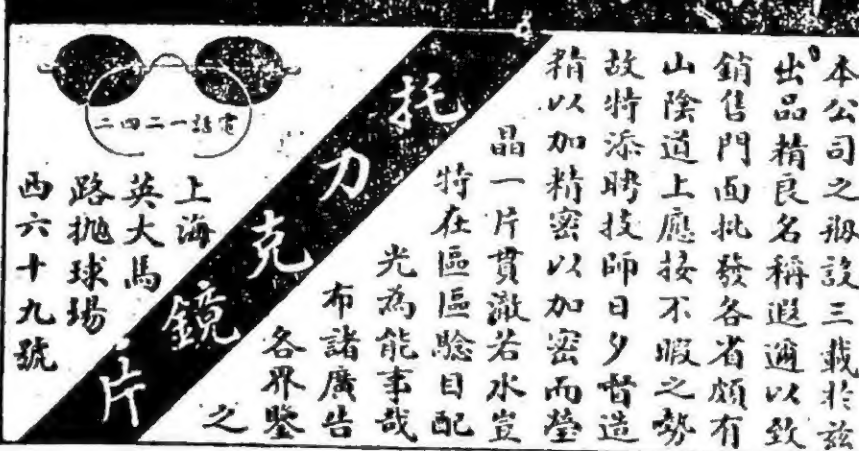 本公司之刱設三載於茲
出品精良名稱遐邇以致
銷售門面批發各省頗有
山陰道上應接不暇之勢
故特添聘技師日夕督造
精以加精密以加密而瑩
晶一片貫澈若水豈
特在區區驗目配
光為能事哉
布諸廣告
各界鑒
之
托力克鏡片
電話一二四二
上海
英大馬
路拋球場
西六十九號